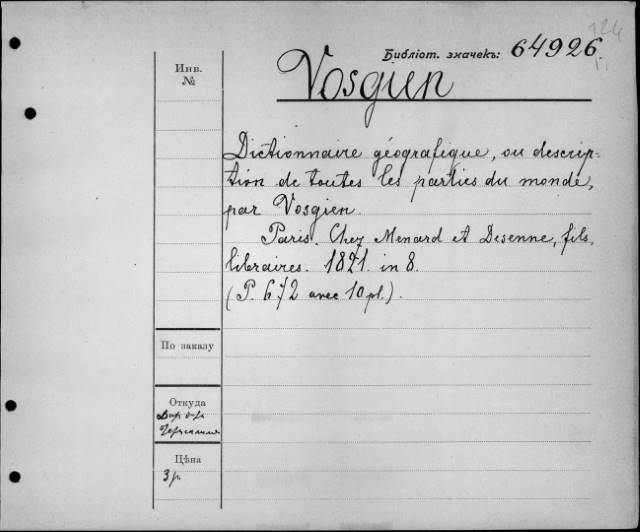 Библіот. значекъ: 64926
Инв.
№
Vosgien
Dictionnaire géografique, ou descrip-
tion de toutes les parties du monde,
par Vosgien.
Paris. Chez Menard et Desenne, fils,
libraires. 1821. in 8.
(P. 672 avec 10 pl.).
По заказу
Откуда
Цѣна
3 р